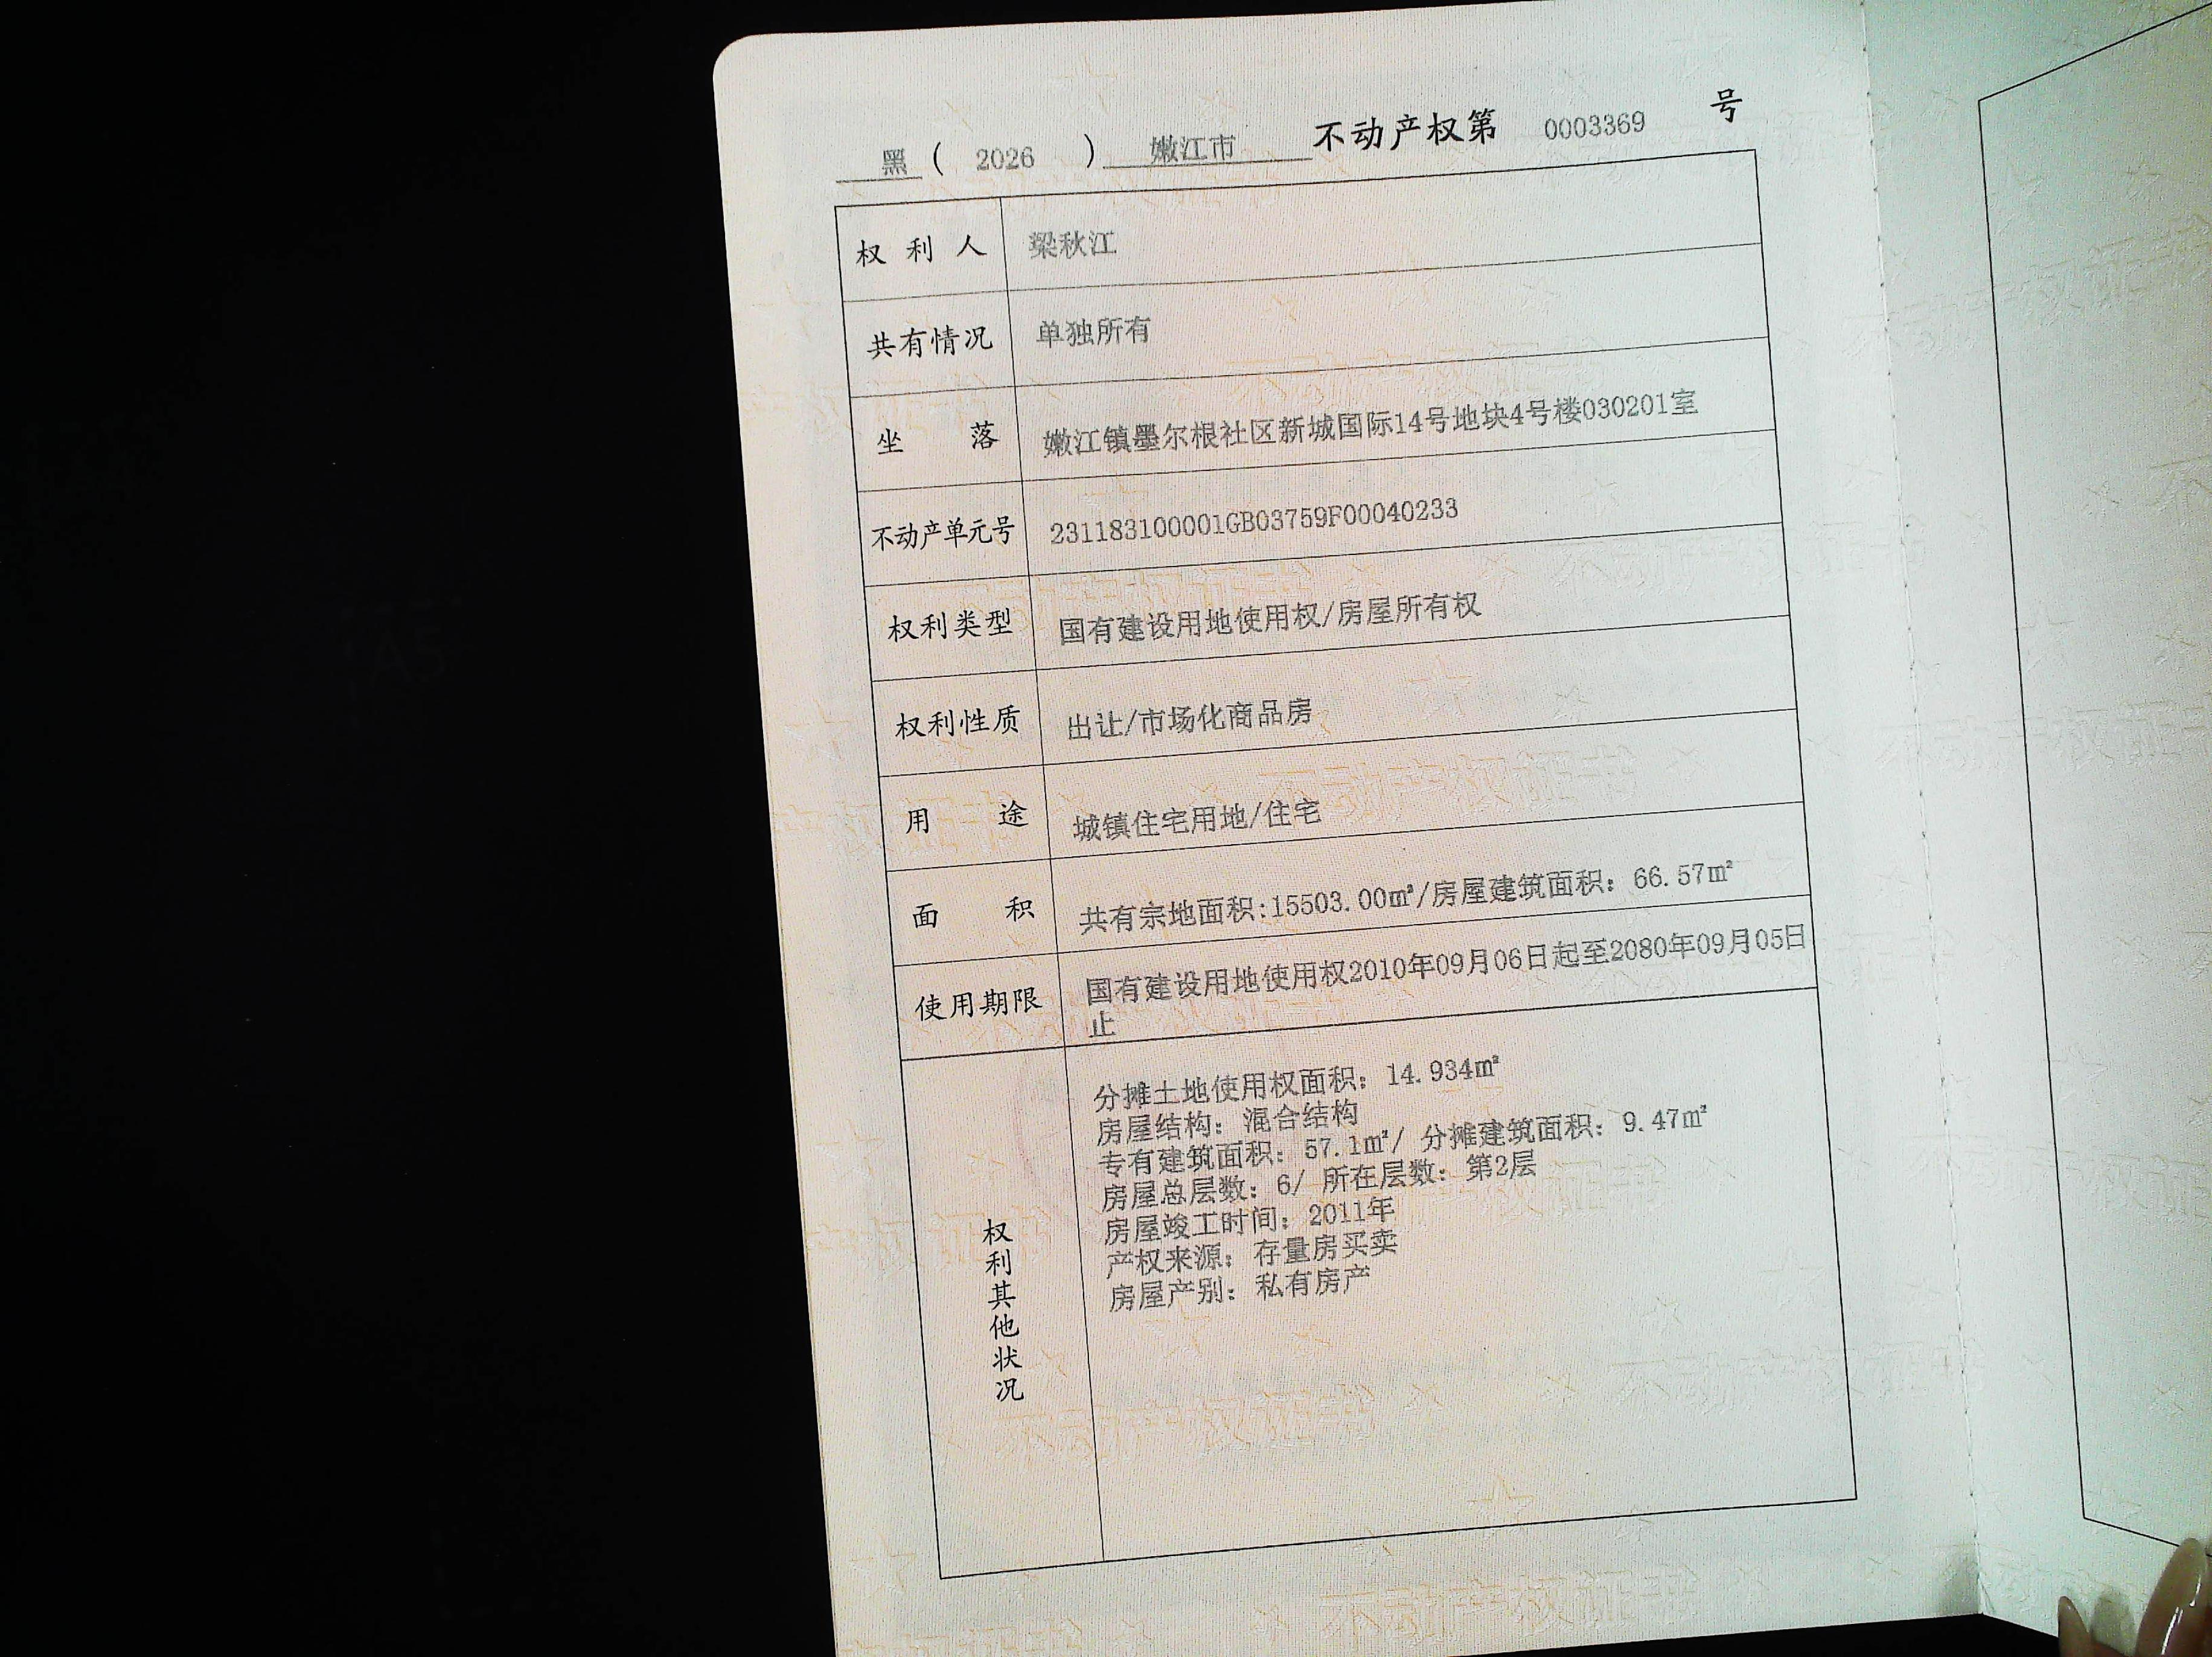 黑 ( 2026 ) 嫩江市 不动产权第 0003369 号
权利人 梁秋江
共有情况 单独所有
坐落 嫩江镇墨尔根社区新城国际14号地块4号楼030201室
不动产单元号 231183100001GB03759F00040233
权利类型 国有建设用地使用权/房屋所有权
权利性质 出让/市场化商品房
用途 城镇住宅用地/住宅
面积 共有宗地面积:15503.00㎡/房屋建筑面积：66.57㎡
使用期限 国有建设用地使用权2010年09月06日起至2080年09月05日
止
权利其他状况
分摊土地使用权面积：14.934㎡
房屋结构：混合结构
专有建筑面积：57.1㎡/ 分摊建筑面积：9.47㎡
房屋总层数：6/ 所在层数：第2层
房屋竣工时间：2011年
产权来源：存量房买卖
房屋产别：私有房产